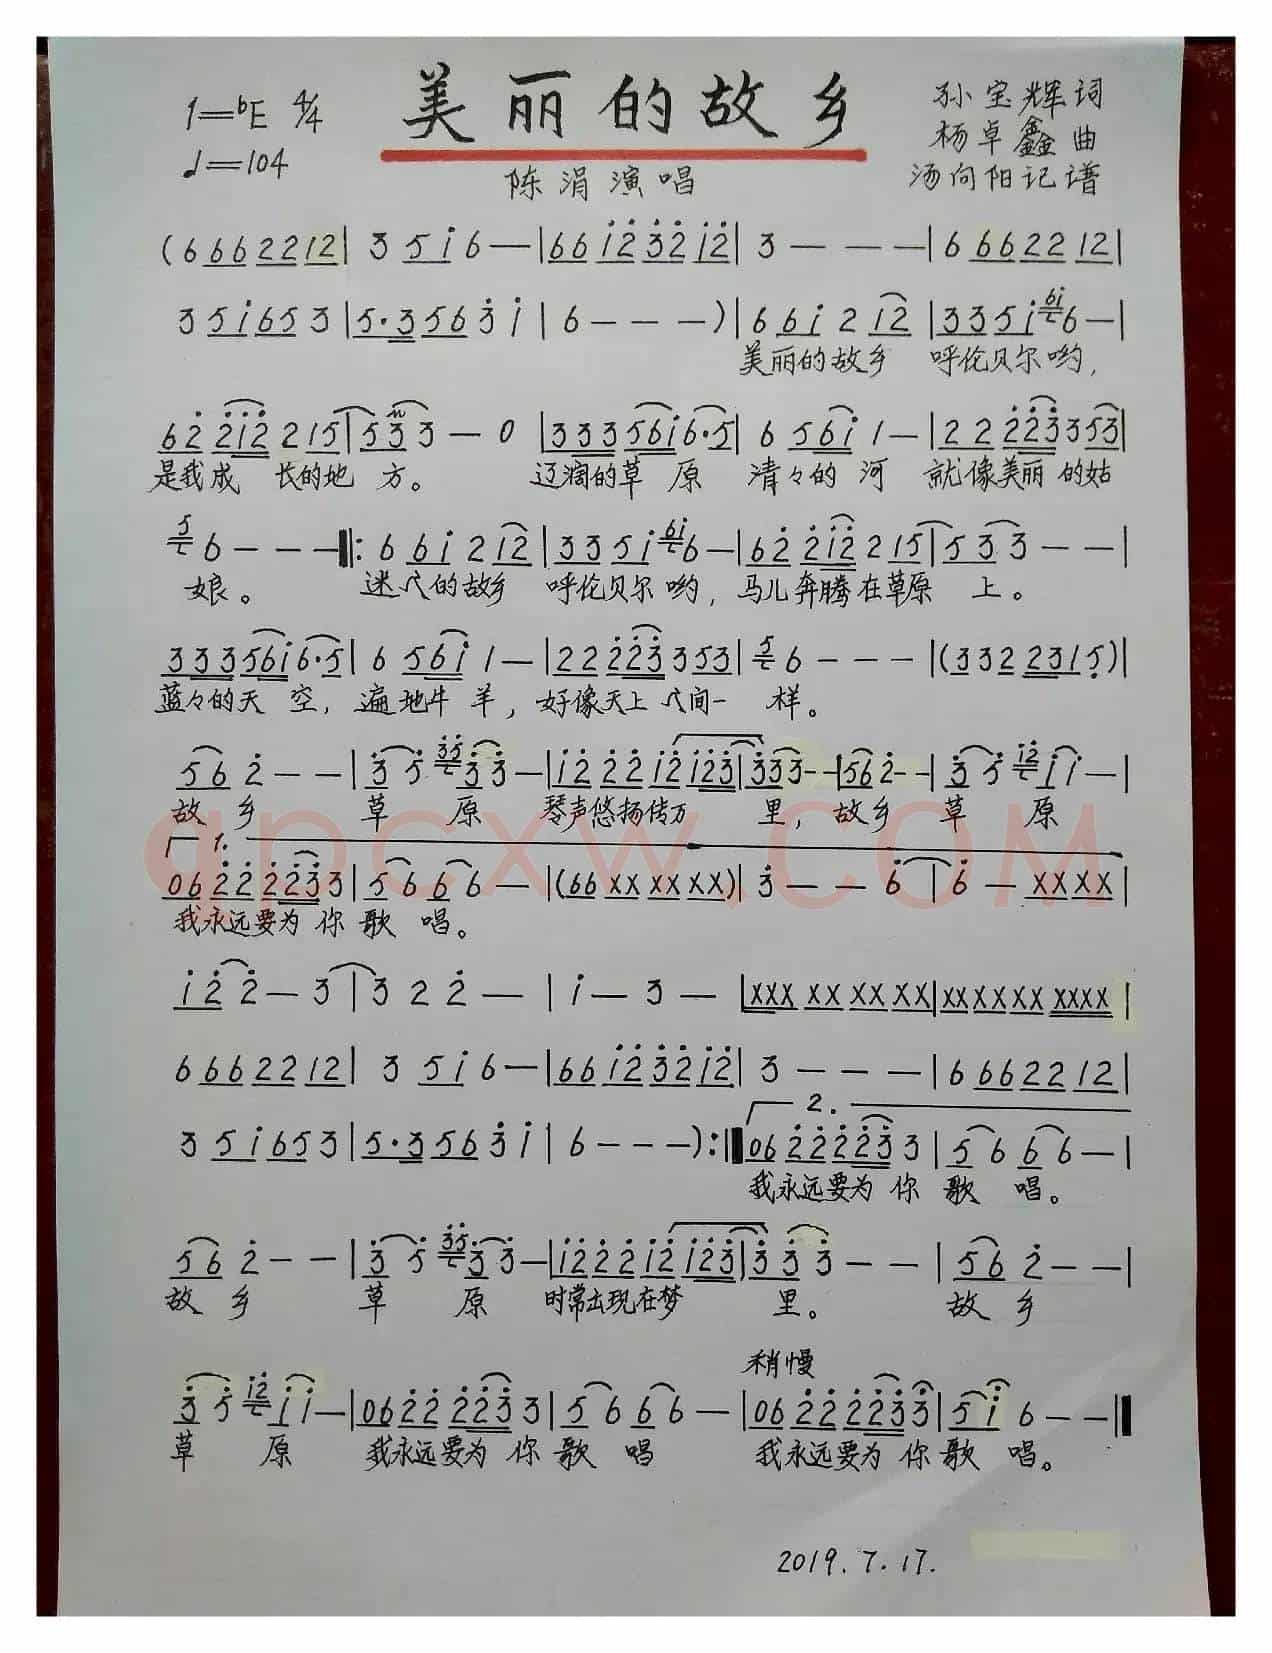 美丽的故乡
1=♭E 4/4
♩=104
孙宝辉词
杨卓鑫曲
汤向阳记谱
陈涓演唱
(6 666 22 12 | 3 5 i 6 — | 66 i2 32 i2 | 3 — — — | 6 66 22 12 |
3 5 i 6 5 3 | 5·3 56 3 i | 6 — — — ) | 6 6i 2 i2 | 33 5i 6i 6 — |
美丽的故乡 呼伦贝尔哟,
62 2i2 2 15 | 5 3 3 — 0 | 333 56i 6·5 | 6 56i 1 — | 22 223 3 53 |
是我成 长的地 方。 辽阔的草 原 清々的 河 就像美丽 的姑
5 6 — — — |: 6 6i 2 i2 | 33 5i 6i 6 — | 62 2i2 2 15 | 5 3 3 — — |
娘。 迷人的故乡 呼伦贝尔 哟, 马儿奔腾在草原 上。
333 56i 6·5 | 6 56i 1 — | 22 2223 3 53 | 5 6 — — — | (33 22 231 5) |
蓝々的天 空, 遍地牛 羊, 好像天上 人间一 样。
56 2 — — | 3 5 35 3 3 — | i2 22 i2 i23 | 3 3 3 — — | 56 2 — — | 3 5 i2 i i — |
故 乡 草 原 琴声悠扬传万 里, 故乡 草 原
1.
06 22 2223 3 | 5 6 6 6 — | (66 XX XX XX) | 3 — — 6 | 6 — XXXX |
我永远要为 你 歌 唱。
i2 2 — 3 | 3 2 2 — | i — 3 — | XXX XX XX XX | XX XX XX XXXX |
6 66 22 12 | 3 5 i 6 — | 66 i2 32 i2 | 3 — — — | 6 66 22 12 |
2.
3 5 i 6 5 3 | 5·3 56 3 i | 6 — — — ) :| 06 22 2223 3 | 5 6 6 6 — |
我永远要为 你 歌 唱。
56 2 — — | 3 5 35 3 3 — | i2 22 i2 i23 | 3 3 3 — — | 56 2 — — |
故 乡 草 原 时常出现在梦 里。 故 乡
稍慢
3 5 i2 i i — | 06 22 2223 3 | 5 6 6 6 — | 06 22 2223 3 | 5 i 6 — — ‖
草 原 我永远要为 你 歌 唱 我永远要为 你 歌 唱。
2019.7.17.
qpcxw.COM